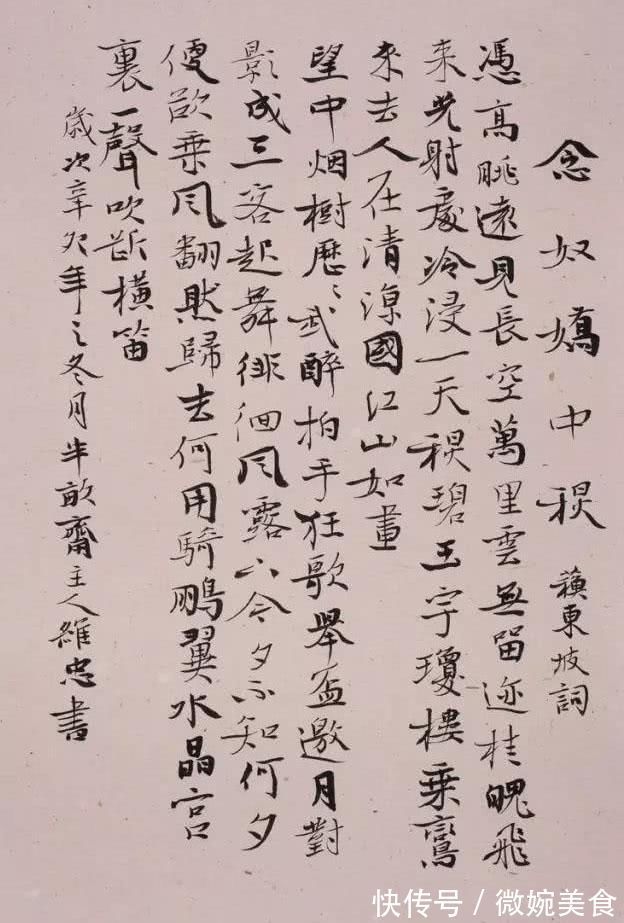 念奴嬌中秋 蘇東坡詞
憑高眺遠見長空萬里雲無留迹桂魄飛
來光射處冷浸一天秋碧玉宇瓊樓乘鸞
來去人在清涼國江山如畫
望中烟樹歷〻我醉拍手狂歌舉盃邀月對
影成三客起舞徘徊風露下今夕不知何夕
便欲乘風翻然歸去何用騎鵬翼水晶宮
裏一聲吹斷橫笛
歲次辛年之冬月半畝齋主人維忠書
快传号 / 微婉美食